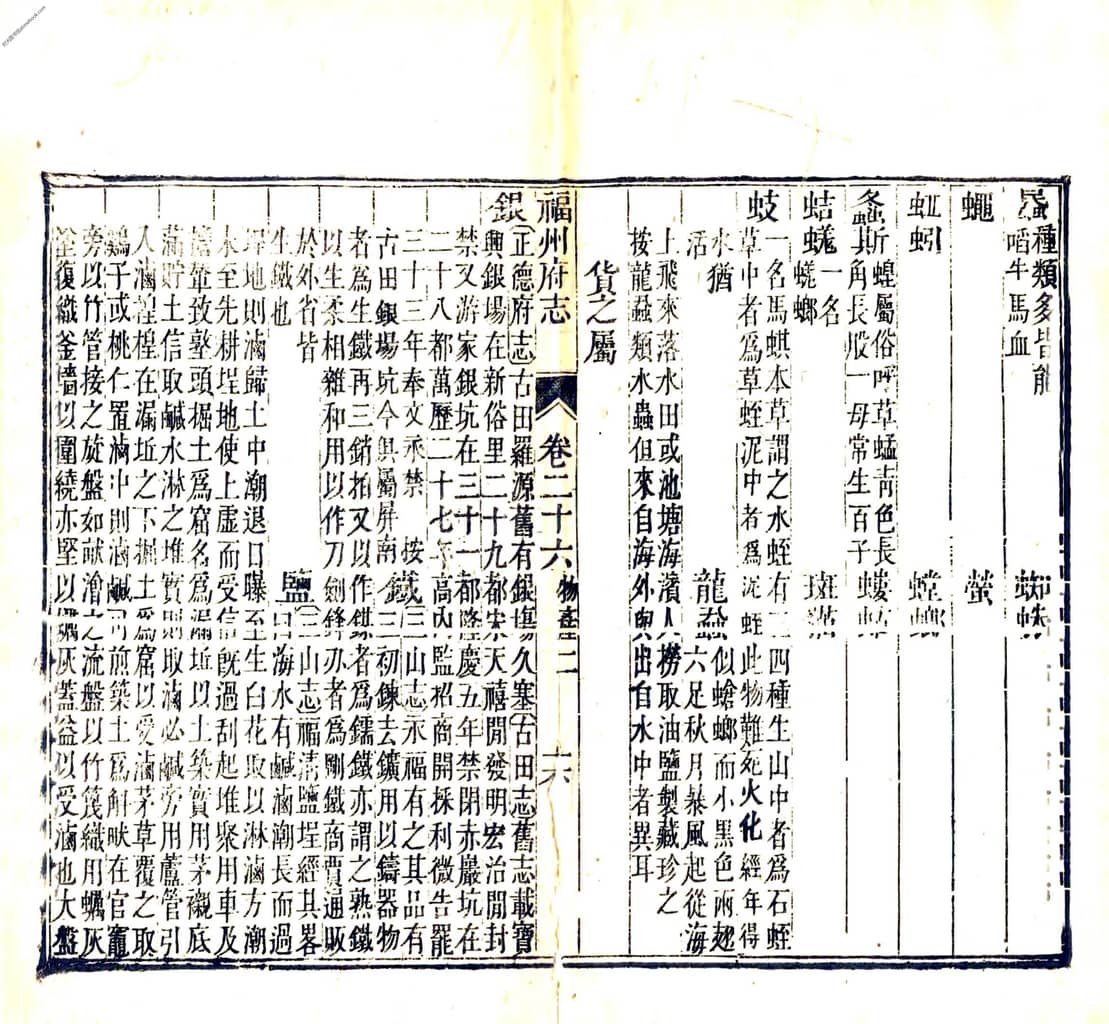 蝨種類多皆能
嘬牛馬血
蜘蛛
蠅
螢
蚯蚓
螳螂
螽斯蝗屬俗呼草蜢青色長
角長股一母常生百子
螻蛄
蛣蜣一名
蜣螂
斑蝥
蛭一名馬蜞本草謂之水蛭有三四種生山中者爲石蛭
草中者爲草蛭泥中者爲泥蛭此物難死火化經年得
水猶
活
龍蝨似蟾螂而小黑色兩翅
六足秋月暴風起從海
上飛來落水田或池塘海濱人撈取油鹽製藏珍之
按龍蝨類水蟲但來自海外與出自水中者異耳
貨之屬
福州府志
卷二十六
物產二
十六
銀(正德府志)古田羅源舊有銀塲久塞(古田志)舊志載寶
興銀場在新俗里二十九都宋天禧閒發明宏治閒封
禁又游家銀坑在三十一都隆慶五年禁閉赤巖坑在
二十八都萬歷二十七年高內監招商開採利微告罷
三十三年奉文永禁
按
古田銀場坑今俱屬屏南
鐵(三山志)永福有之其品有
三初鍊去鑛用以鑄器物
者爲生鐵再三銷拍又以作鍱者爲鑐鐵亦謂之熟鐵
以生柔相雜和用以作刀劍鋒刃者爲剛鐵商賈通販
於外省皆
生鐵也
鹽(三山志)福清鹽埕經其畧
曰海水有鹹滷潮長而過
埕地則滷歸土中潮退日曝至生白花取以淋滷方潮
未至先耕埕地使土虛而受信旣過刮起堆聚用車及
擔輦致墪頭掘土爲窟名爲漏坵以土築實用茅襯底
滿貯土信取鹹水淋之堆實則取滷必鹹旁用蘆管引
入滷埕埕在漏坵之下掘土爲窟以受滷茅草覆之取
鷄子或桃仁置滷中則滷鹹可煎築土爲斛畎在官竈
旁以竹管接之旋盤如畎澮之流盤以竹篾織用蠣灰
塗復織釜墻以圍繞亦堅以蠣灰蓋益以受滷也大盤